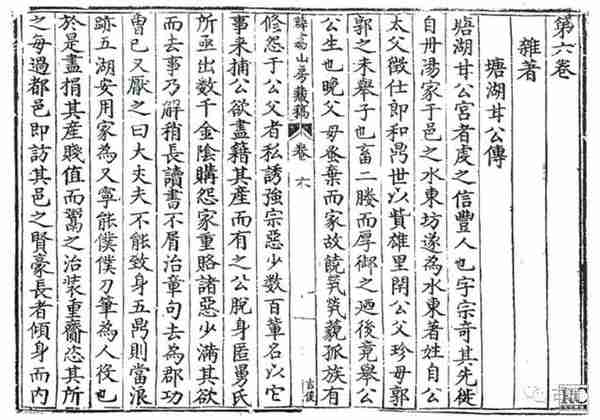 第六卷
雜著
塘湖甘公傳
塘湖甘公宮者虔之信豐人也字宗奇其先徙
自丹湯家于邑之水東坊遂為水東著姓自公
太父徵仕郎和鼎世以貲雄里閈公父珍母郭
郭之未舉子也畜二媵而厚御之迺後竟舉公
公生也晚父母蚤棄而家故饒煢煢藐孤族有
山房藏稿 卷六
修怨于公父者私誘強宗惡少數百輩名以它
事來捕公欲盡籍其產而有之公脫身匿舅氏
所亟出數千金陰購怨家重賂諸惡少滿其欲
而去事乃解稍長讀書不屑治章句去為郡功
曹已又厭之曰大丈夫不能致身五鼎則當浪
跡五湖安用家為又寧能僕僕刀筆為人役也
於是盡捐其產賤值而鬻之治裝重齎恣其所
之每過都邑即訪其邑之賢豪長者傾身而內